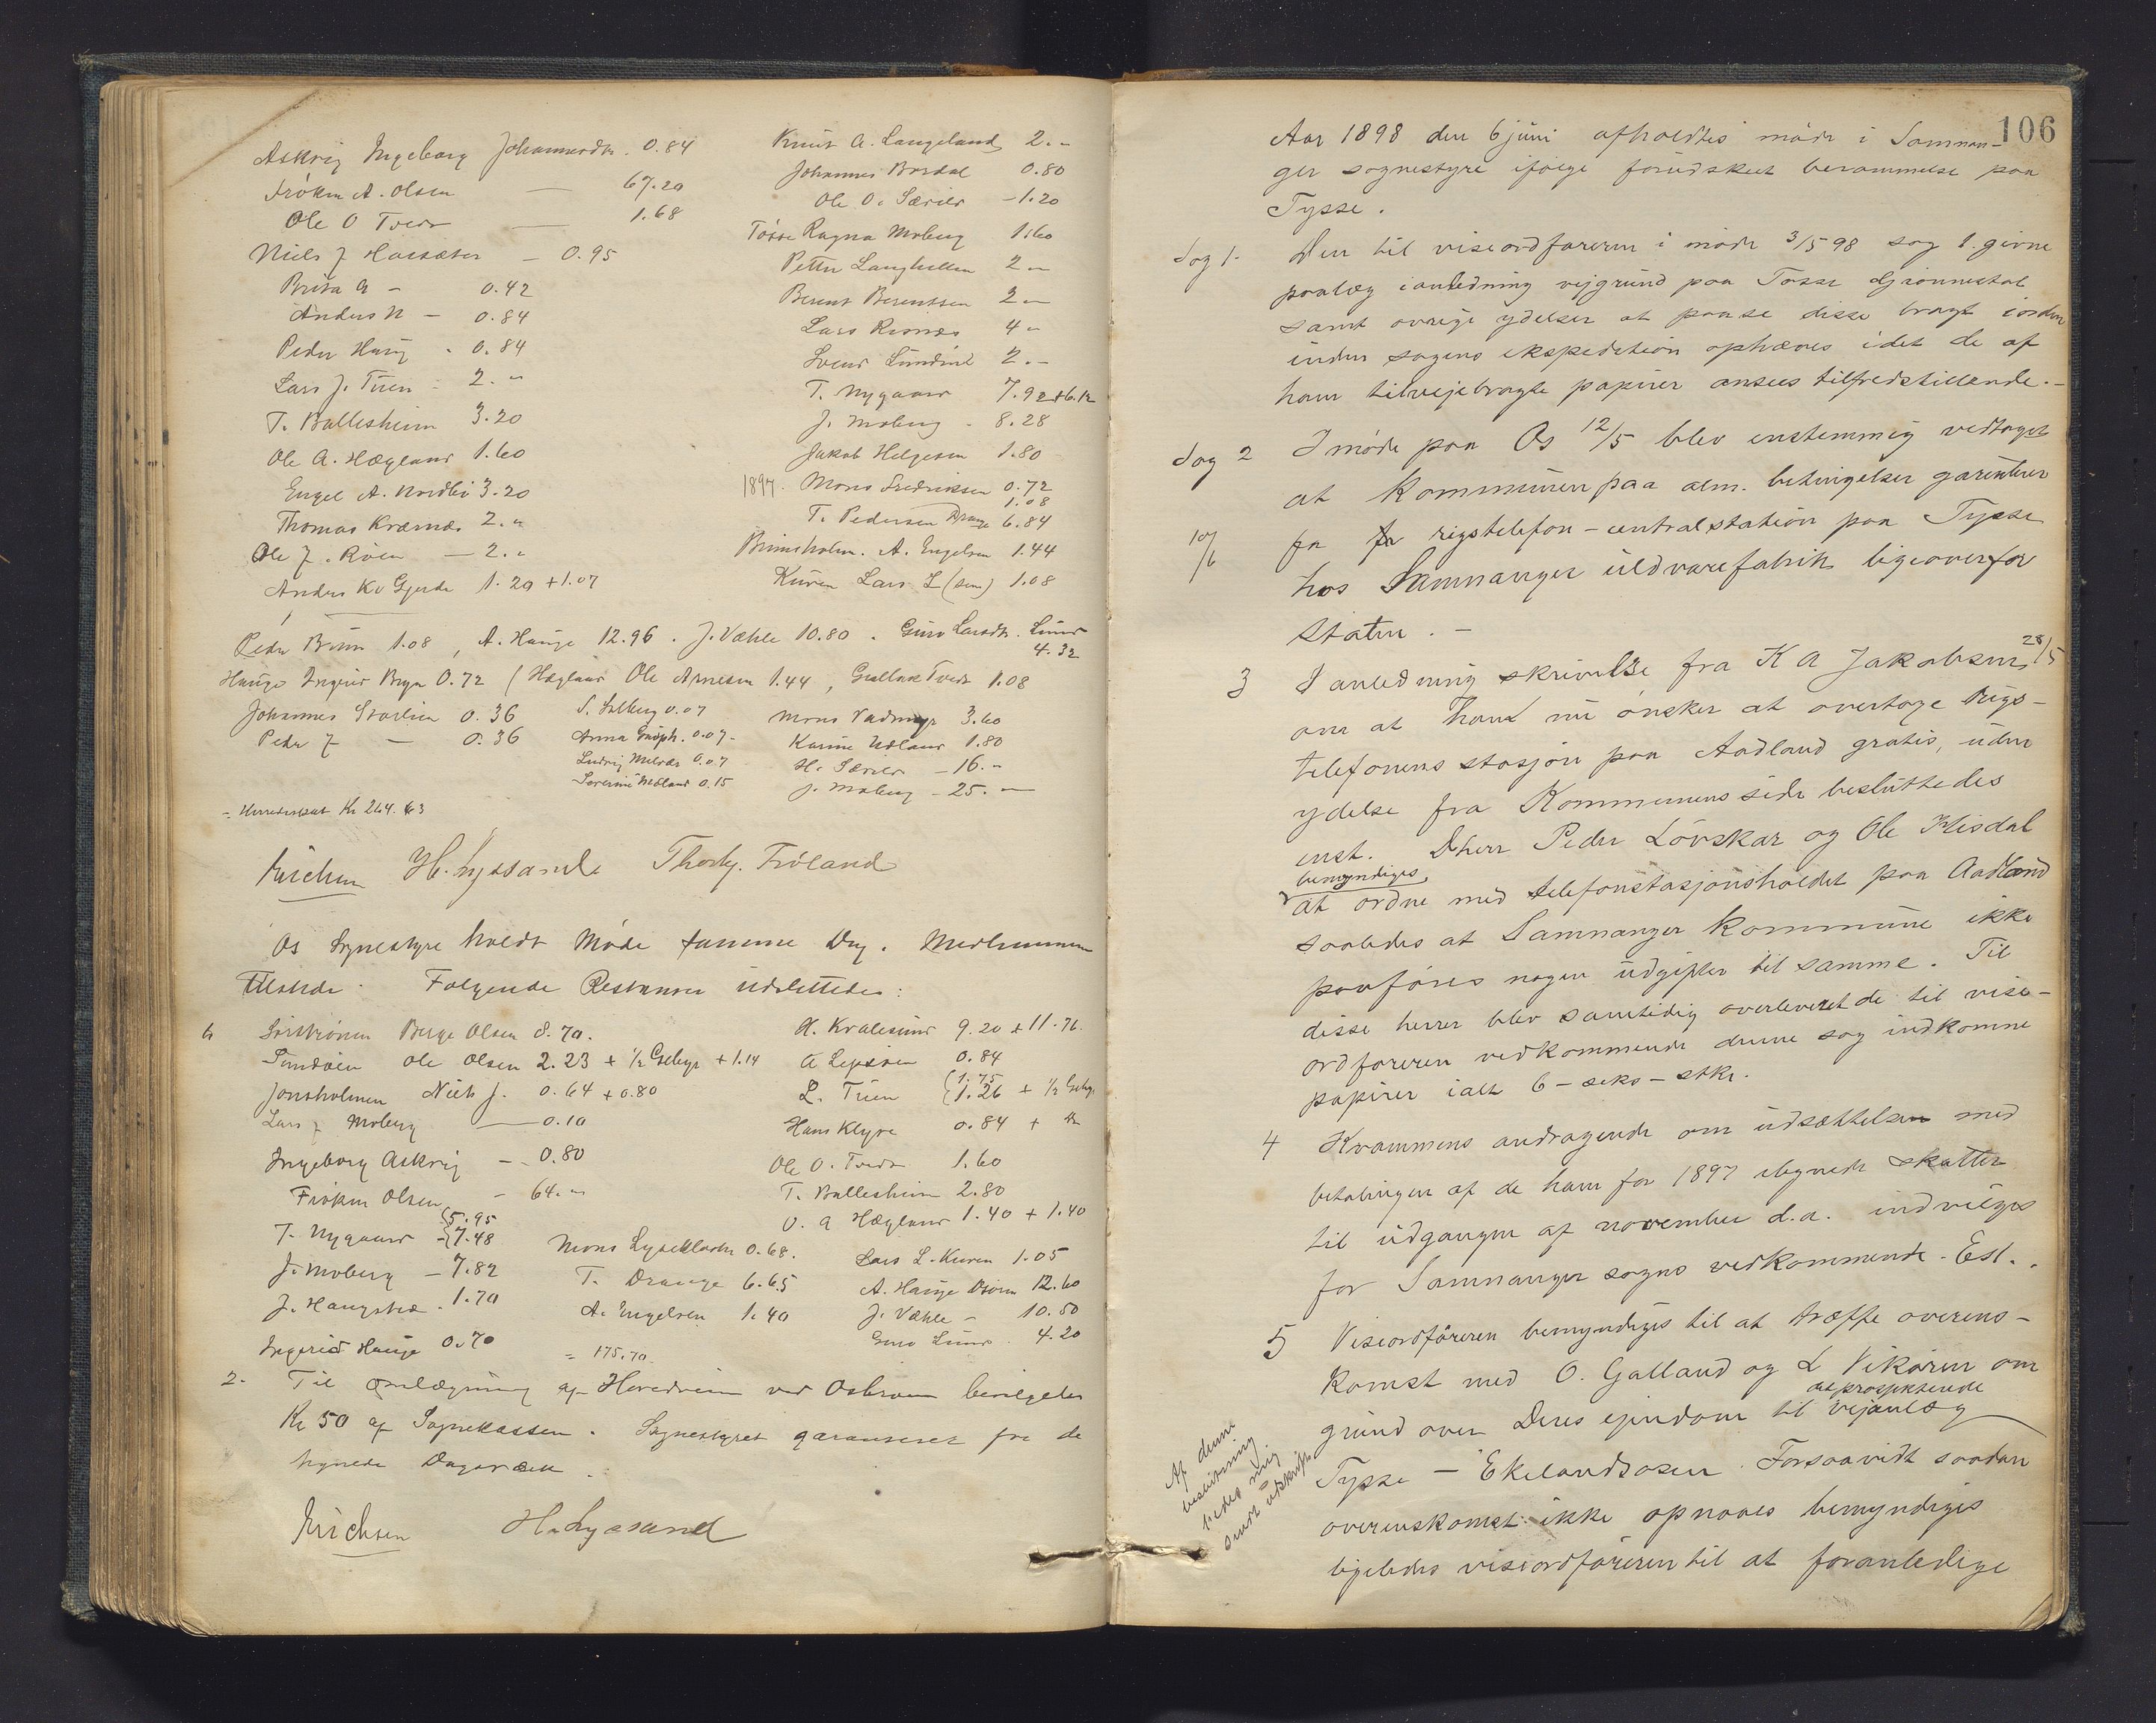 Askvig Ingeborg Johannesdtr. 0.84
Frøken A. Olsen — 67.20
Ole O Tveit — 1.68
Niels J — 0.95
Brita A — 0.42
Anders N — 0.84
Peder Haug - 0.84
Lars J. Tuen - 2.-
T. Ballesheim 3.20
Ole A. Hægland 1.60
Engel A. Nordbø 3.20
Thomas Kvernes 2.-
Ole J. Røen — 2.-
Anders Kv Gjerde 1.20 + 1.07
Knut A. Langeland 2.-
Johannes Bordal 0.80
Ole O. Særvold - 1.20
Tøsse Ragna Moberg 1.60
Petter Langhellen 2 -
Berent Berentsen 2 -
Lars Risnes 4 -
Svend 2.-
T. Nygaard 7.92 + 6.12
J. Moberg - 8.28
Jakob Helgesen 1.80
1897. Mons Fredriksen 0.72
1.08
T. Pedersen Drange 6.84
Bruns­holm. A. Engelsen 1.44
Kuven Lars L (sen) 1.08
Peder Bruun 1.08, A. Hauge 12.96. J. Væhle 10.80. Guro Larsdtr. Lund
4.32
Hauge Ingerid 0.72 (Hægland Ole Arnesen 1.44, Gullak Tveit 1.08
Johannes Storlien 0.36
Peder J — 0.36
S. Solberg 0.07
Anna 0.07 -
Ludvig 0.07
Severine Mæland 0.15
Mons Vadmyr 3.60
Karine 1.80
H. Særvold — 16.-
J. Moberg - 25.-
= Herredsskat Kr 264.63
Erichsen H. Lyssand Thorb. Frøland
Os Sognestyre holdt Møde samme Dag. Medlemmene
tilstede. Følgende Restanser udslettedes:
6 Sørstrønen Berge Olsen 8.70.
Sundøen Ole Olsen 2.23 + ½ Gebyr + 1.14
Jonsholmen Niels J. 0.64 + 0.80
Lars J Moberg — 0.10
Ingeborg Askvig — 0.80
Frøken Olsen - 64.-
T. Nygaard - {5.95
7.48
J. Moberg — 7.82
J. 1.70
Ingerid Hauge 0.70
H. Kvalesund 9.20 + 11.76.
A Lepsøen 0.84
L. Tuen {1.75
1.26 + ½ Gebyr
Hans Klyve 0.84 + do
Ole O. Tveit 1.60
T. Ballesheim 2.80
O. A Hægland 1.40 + 1.40
Mons Lyseklosteret 0.68.
T. Drange 6.65
A. Engelsen 1.40
= 175.70
Lars L. Kuven 1.05
A. Hauge 12.60
J. Væhle - 10.50
Guro Lund 4.20
2. Til omlægning af Hovedveien ved Osbroen bevilgedes
Kr 50 af Sognekassen. Sognestyret garanterer for de
tegnede Dagsværk.
Erichsen H. Lyssand
106
Aar 1898 den 6 juni afholdtes møde i Samnan-
ger sognestyre ifølge forudskeet berammelse paa
Tysse.
Sag 1. Den til viseordføreren i møde 3/5 98 sag 1. givne
paalæg i anledning vejgrund paa Tøsse
samt øvrige ydelser at paase disse bragt i orden
inden sagens ekspedition ophæves idet de af
ham tilvejebragte papirer ansees tilfredstillende. -
Sag 2 I møde paa Os 12/5 blev enstemmig vedtaget
at Kommunen paa alm. betingelser garanterer
10/6 for rigstelefon-centralstation paa Tysse
hos Samnanger uldvarefabrik ligeoverfor
staten. -
3 I anledning skrivelse fra K A Jakobsen 28/5
om at han nu ønsker at overtage Rigs-
telefonens stasjon paa Aadland gratis, uden
ydelse fra Kommunens side besluttedes
enst. Dherr Peder Løvskar og Ole Hisdal
bemyndiges
at ordne med telefonstasjonsholdet paa Aadland
saaledes at Samnanger Kommune ikke
paaføres nogen udgifter til samme. Til
disse herrer blev samtidig overleveret de til vise-
ordføreren vedkommende denne sag indkomne
papirer ialt 6 - seks - stkr.
4 Kvammens andragende om udsættelse med
betalingen af de ham for 1897 ilignede skatter
til udgangen af november d.a. indvilges
for Samnanger sogns vedkommende. Est..
5 Viseordføreren bemyndiges til at træffe overens-
komst med O. Galland og L Vikøren om
grund over Deres ejendom til det prosjekterede vejanlæg
Tysse - Ekelandsosen. Forsaavidt saadan
overenskomst ikke opnaaes bemyndiges
ligeledes viseordføreren til at foranledige
Af denne
beslutning
bedes mig
sendt utskrift